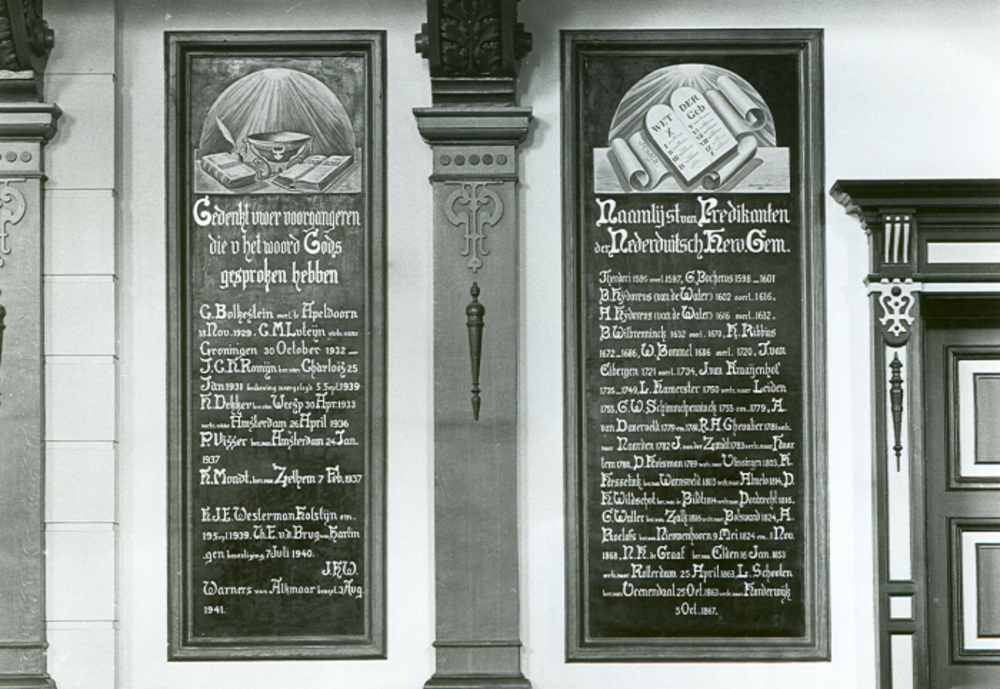 Gedenkt uwer voorgangeren
die u het woord Gods
gesproken hebben
G. Bolkestein overl. te Apeldoorn
18 Nov. 1929. G.M. Luteijn vertr. naar
Groningen 30 October 1932 —
J.C.H. Romijn ber. van Charlois 25
Jan 1931 bediening neergelegd 5 Sept. 1939
H. Dekker ber. van Weesp 30 Apr. 1933
vertr. naar Amsterdam 26 April 1936
P. Visser ber. van Amsterdam 24 Jan.
1937
H. Mondt. ber. van Zelhem 7 Feb. 1937
H.J.E. Westerman Holstijn em.
19 Sept. 1939. Th. E. v.d. Brug van Hartin
gen bevestiging 7 Juli 1940.
J.H.W.
Warners van Alkmaar bevest. 3 Aug
1941.
WET DER
Geb
Naamlijst van Predikanten
der Nederduitsch Herv. Gem.
Theodori 1595 overl. 1597, G. Bucherus 1598 — 1601
B. Hydorus (van de Water) 1602 overl. 1616.
A. Hydorus (van de Water) 1616 overl. 1632.
B. Wilbrenninck 1632 overl. 1670, H. Ribbius
1672 — 1686, W. Bommel 1686 overl. 1720, J. van
Eibergen 1721 overl. 1734, J. van Kraijenhof
1735 — 1749, L. Hamerster 1750 vertr. naar Leiden
1755, G.W. Schimmelpenninck 1755 em. 1779, A.
van Doneveldt 1779 em. 1781, R.A. Chevalier 1781 vertr.
naar Naarden 1782 J. van der Zandt 1783 vertr. naar Haar
lem 1788, D. Huisman 1789 vertr. naar Vlissingen 1803, H.
Hesselink ber. van Warnsveld 1803 vertr. naar Almelo 1814, D.
H. Wildschot ber. van de Bildt 1814 vertr. naar Dordrecht 1816.
G. Waller ber. van Zalk 1816 vertr. naar Bolsward 1824, A.
Roelofs ber. van Nieuwenhoven 9 Mei 1824 em. 1 Nov.
1868, N.H. de Graaf ber. van Elden 16 Jan. 1853
vertr. naar Rotterdam 25 April 1863, L. Schouten
ber. van Veenendaal 25 Oct. 1863 vertr. naar Harderwijk
5 Oct. 1867.